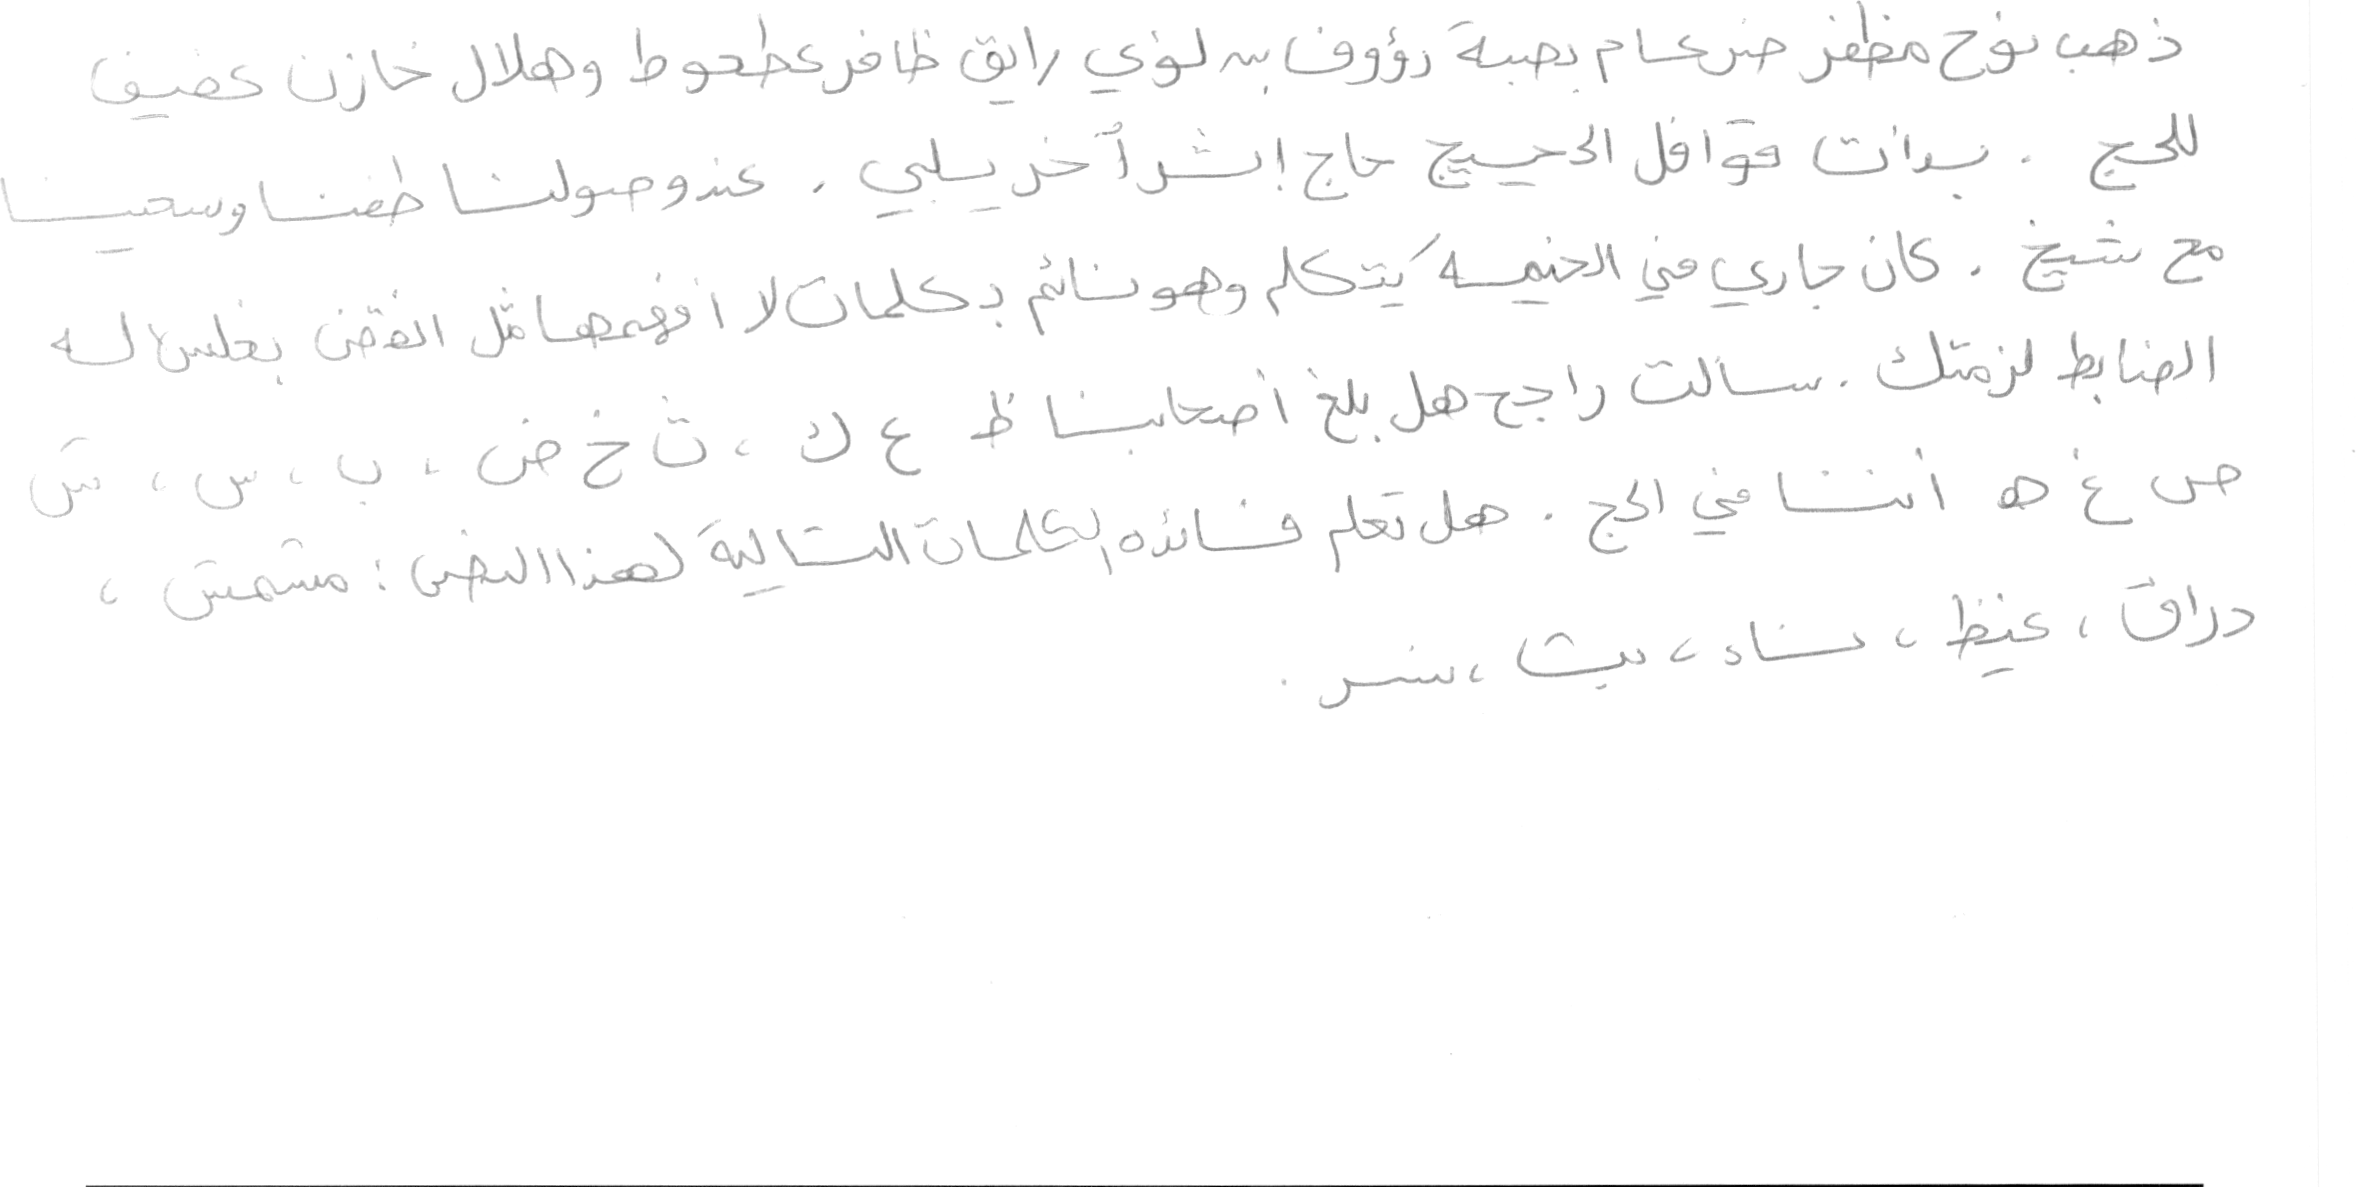 ذهب نوح مظفر ضرغام بصحبة رؤوف بن لؤي رايق ظافر عطعوط وهلال خازن كضيف
للحج . بدأت قوافل الحجيج حاج إثر آخر يلبي . عند وصولنا طفنا وسعينا
مع شيخ . كان جاري في الخيمه يتكلم وهو نائم بكلمات لا افهمها مثل القض بغلس لا له
الضابط لزمتك . سألت راجح هل بلغ أصحابنا ظ ع ك ، ث خ ض ، ب ، س ، ش
ص غ ه أننا في الحج . هل تعلم فائده الكلمات التالية لهذا النص : مشمش ،
دراق ، غيظ ، شاه ، بيث ، نسر .